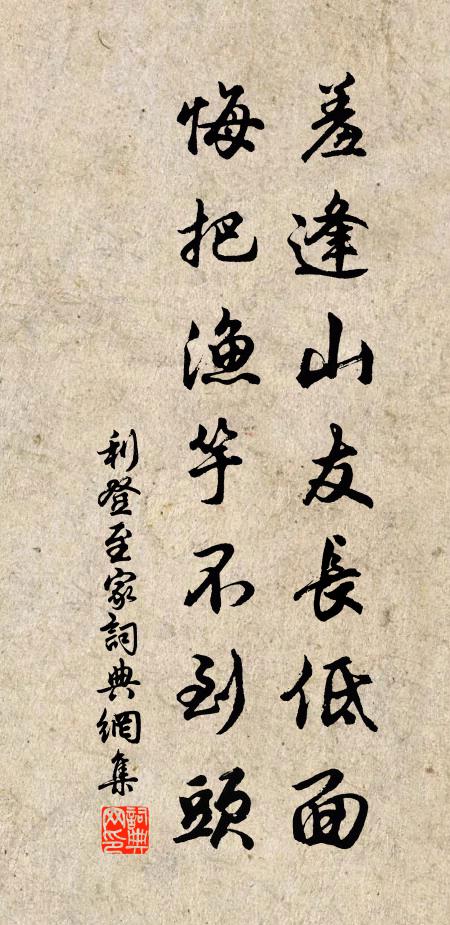 羞逢山友長低面
悔把漁竿不到頭
利登至家詞典網集
詞典網印